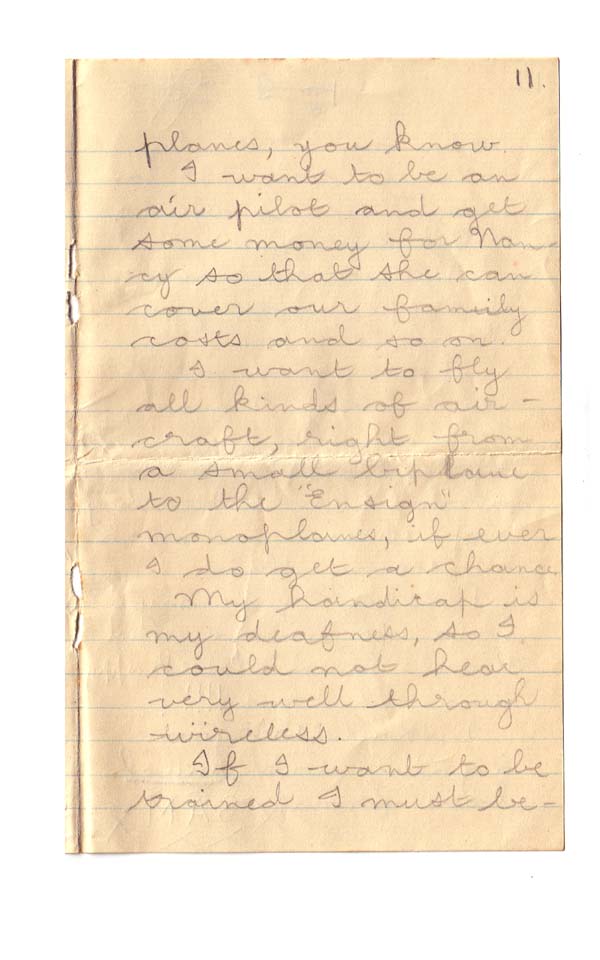 11.
planes, you know.
I want to be an
air pilot and get
some money for Nan-
cy so that she can
cover our family
costs and so on.
I want to fly
all kinds of air -
craft, right from
a small biplane
to the "Ensign"
monoplanes, if ever
I do get a chance.
My handicap is
my deafness, so I
could not hear
very well through
wireless.
If I want to be
trained I must be-